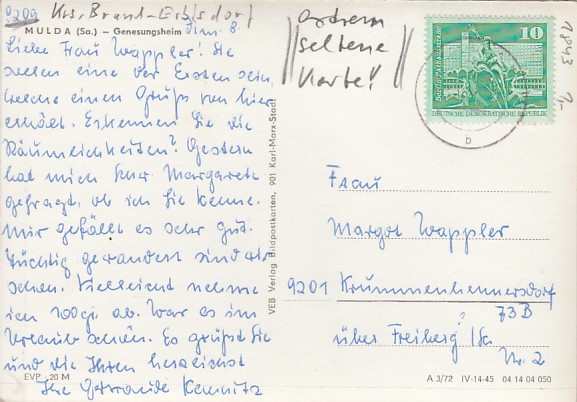 9209 Krs. Brand-Erbisdorf
MULDA (Sa.) – Genesungsheim
d. 8.
Liebe Frau Wappler! Sie
sollen eine der Ersten sein,
welche einen Gruß von hier
erhält. Erkennen Sie die
Räumlichkeiten? Gestern
hat mich Schw. Margarete
gefragt, ob ich Sie kenne.
Mir gefällt es sehr gut.
Tüchtig gewandert sind wir
schon. Vielleicht nehme
ich 100 gr. ab. War es im
Urlaub schön. Es grüßt Sie
und die Ihren herzlichst
Ihre Gertraude Kemnitz
EVP 20 M
VEB Verlag Bildpostkarten, 901 Karl-Marx-Stadt
extrem
seltene
Karte!
10
DEUTSCHE DEMOKRATISCHE REPUBLIK
b
1843
1,-
Frau
Margot Wappler
9201 Krummenhennersdorf
73B
über Freiberg /Sa.
Nr. 2
A 3/72 IV-14-45 04 14 04 050